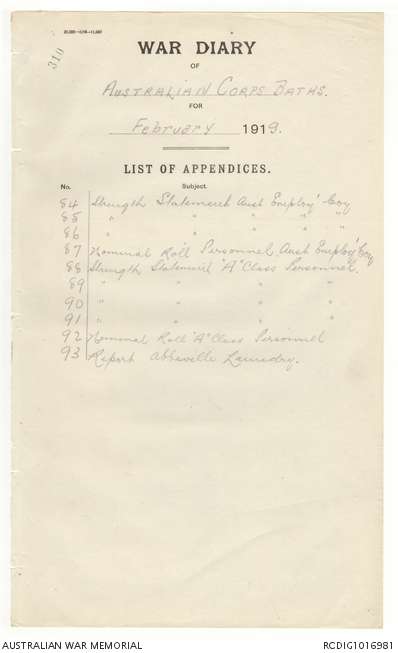 310
WAR DIARY
OF
AUSTRALIAN CORPS BATHS.
FOR
February 1919.
LIST OF APPENDICES.
No. Subject.
84 Strength Statement Aust Employ' Coy
85 " " " " "
86 " " " " "
87 Nominal Roll Personnel Aust Employ' Coy
88 Strength Statement "A" Class Personnel.
89 " " " "
90 " " " "
91 " " " "
92 Nominal Roll "A" Class Personnel
93 Report Abbeville Laundry.
AUSTRALIAN WAR MEMORIAL RCDIG1016981